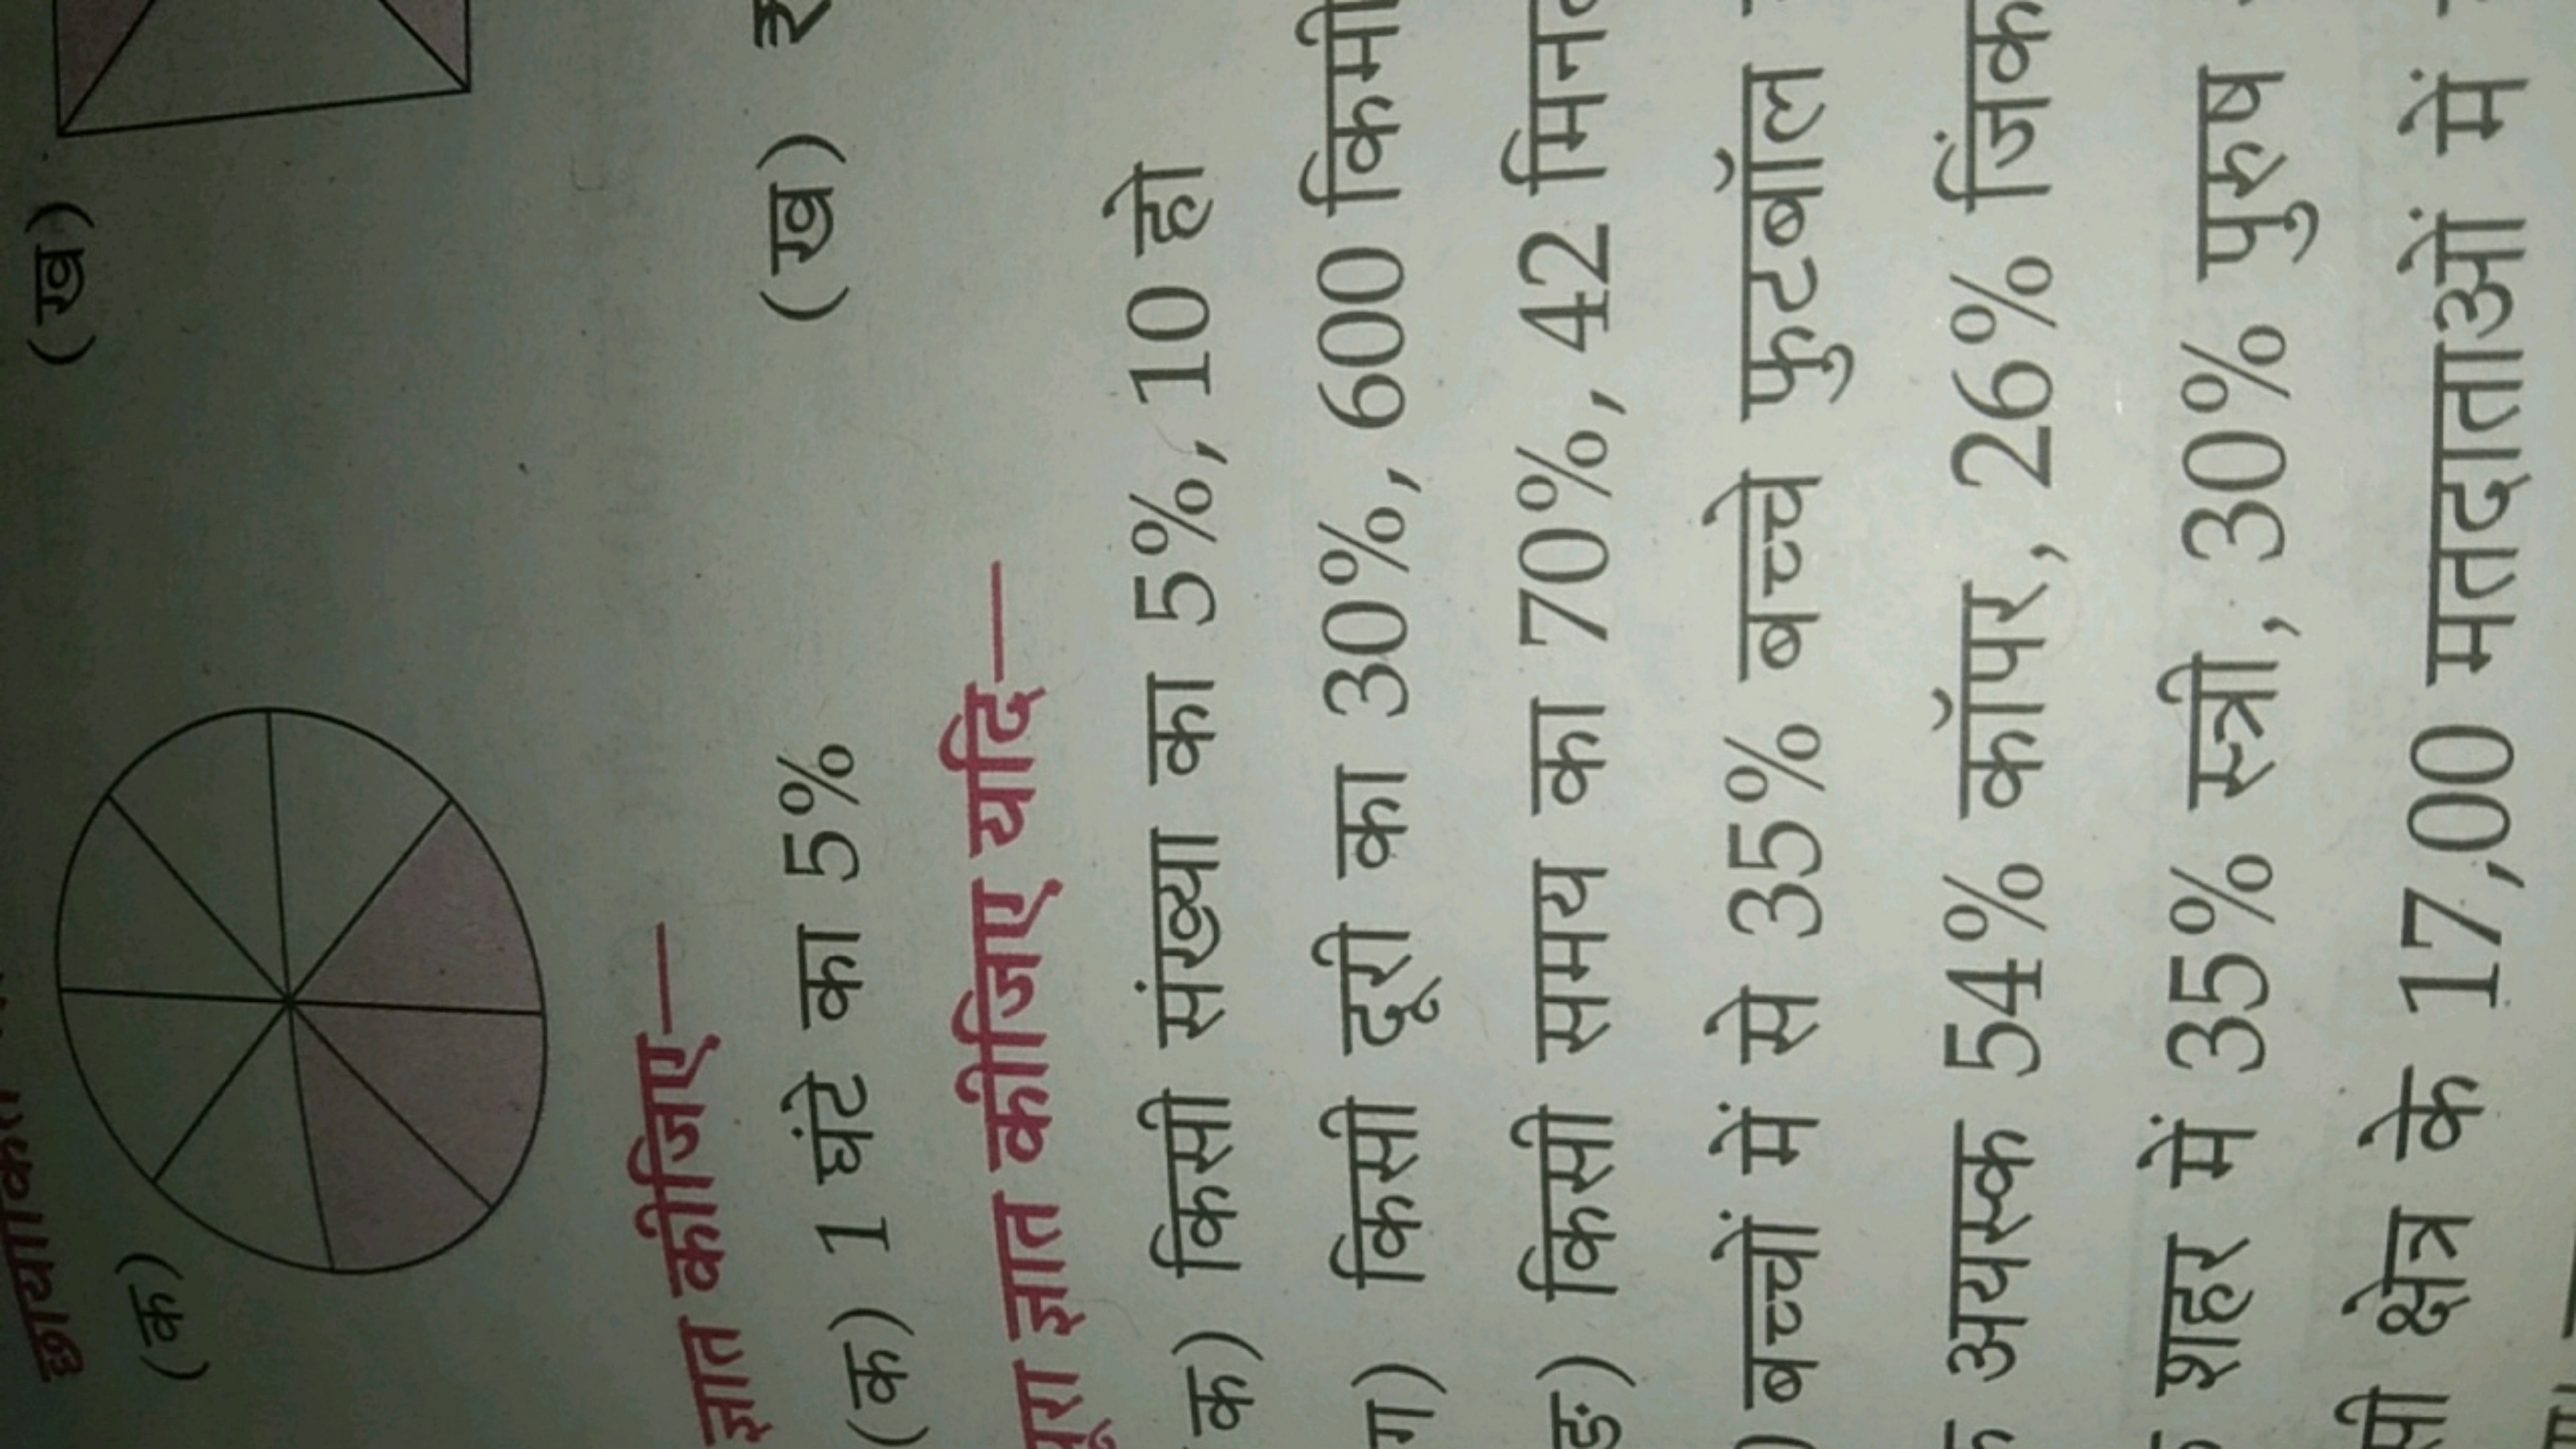 (क) (ख)
ज्ञात कीजिए—
(क) 1 घंटे का 5% (ख) ₹
पूरा ज्ञात कीजिए यदि—
क) किसी संख्या का 5%, 10 हो
ग) किसी दूरी का 30%, 600 किमी
ङ) किसी समय का 70%, 42 मिनट
) बच्चों में से 35% बच्चे फुटबॉल
अयस्क 54% कॉपर, 26% जिंक
शहर में 35% स्त्री, 30% पुरुष
क्षेत्र के 17,00 मतदाताओं में